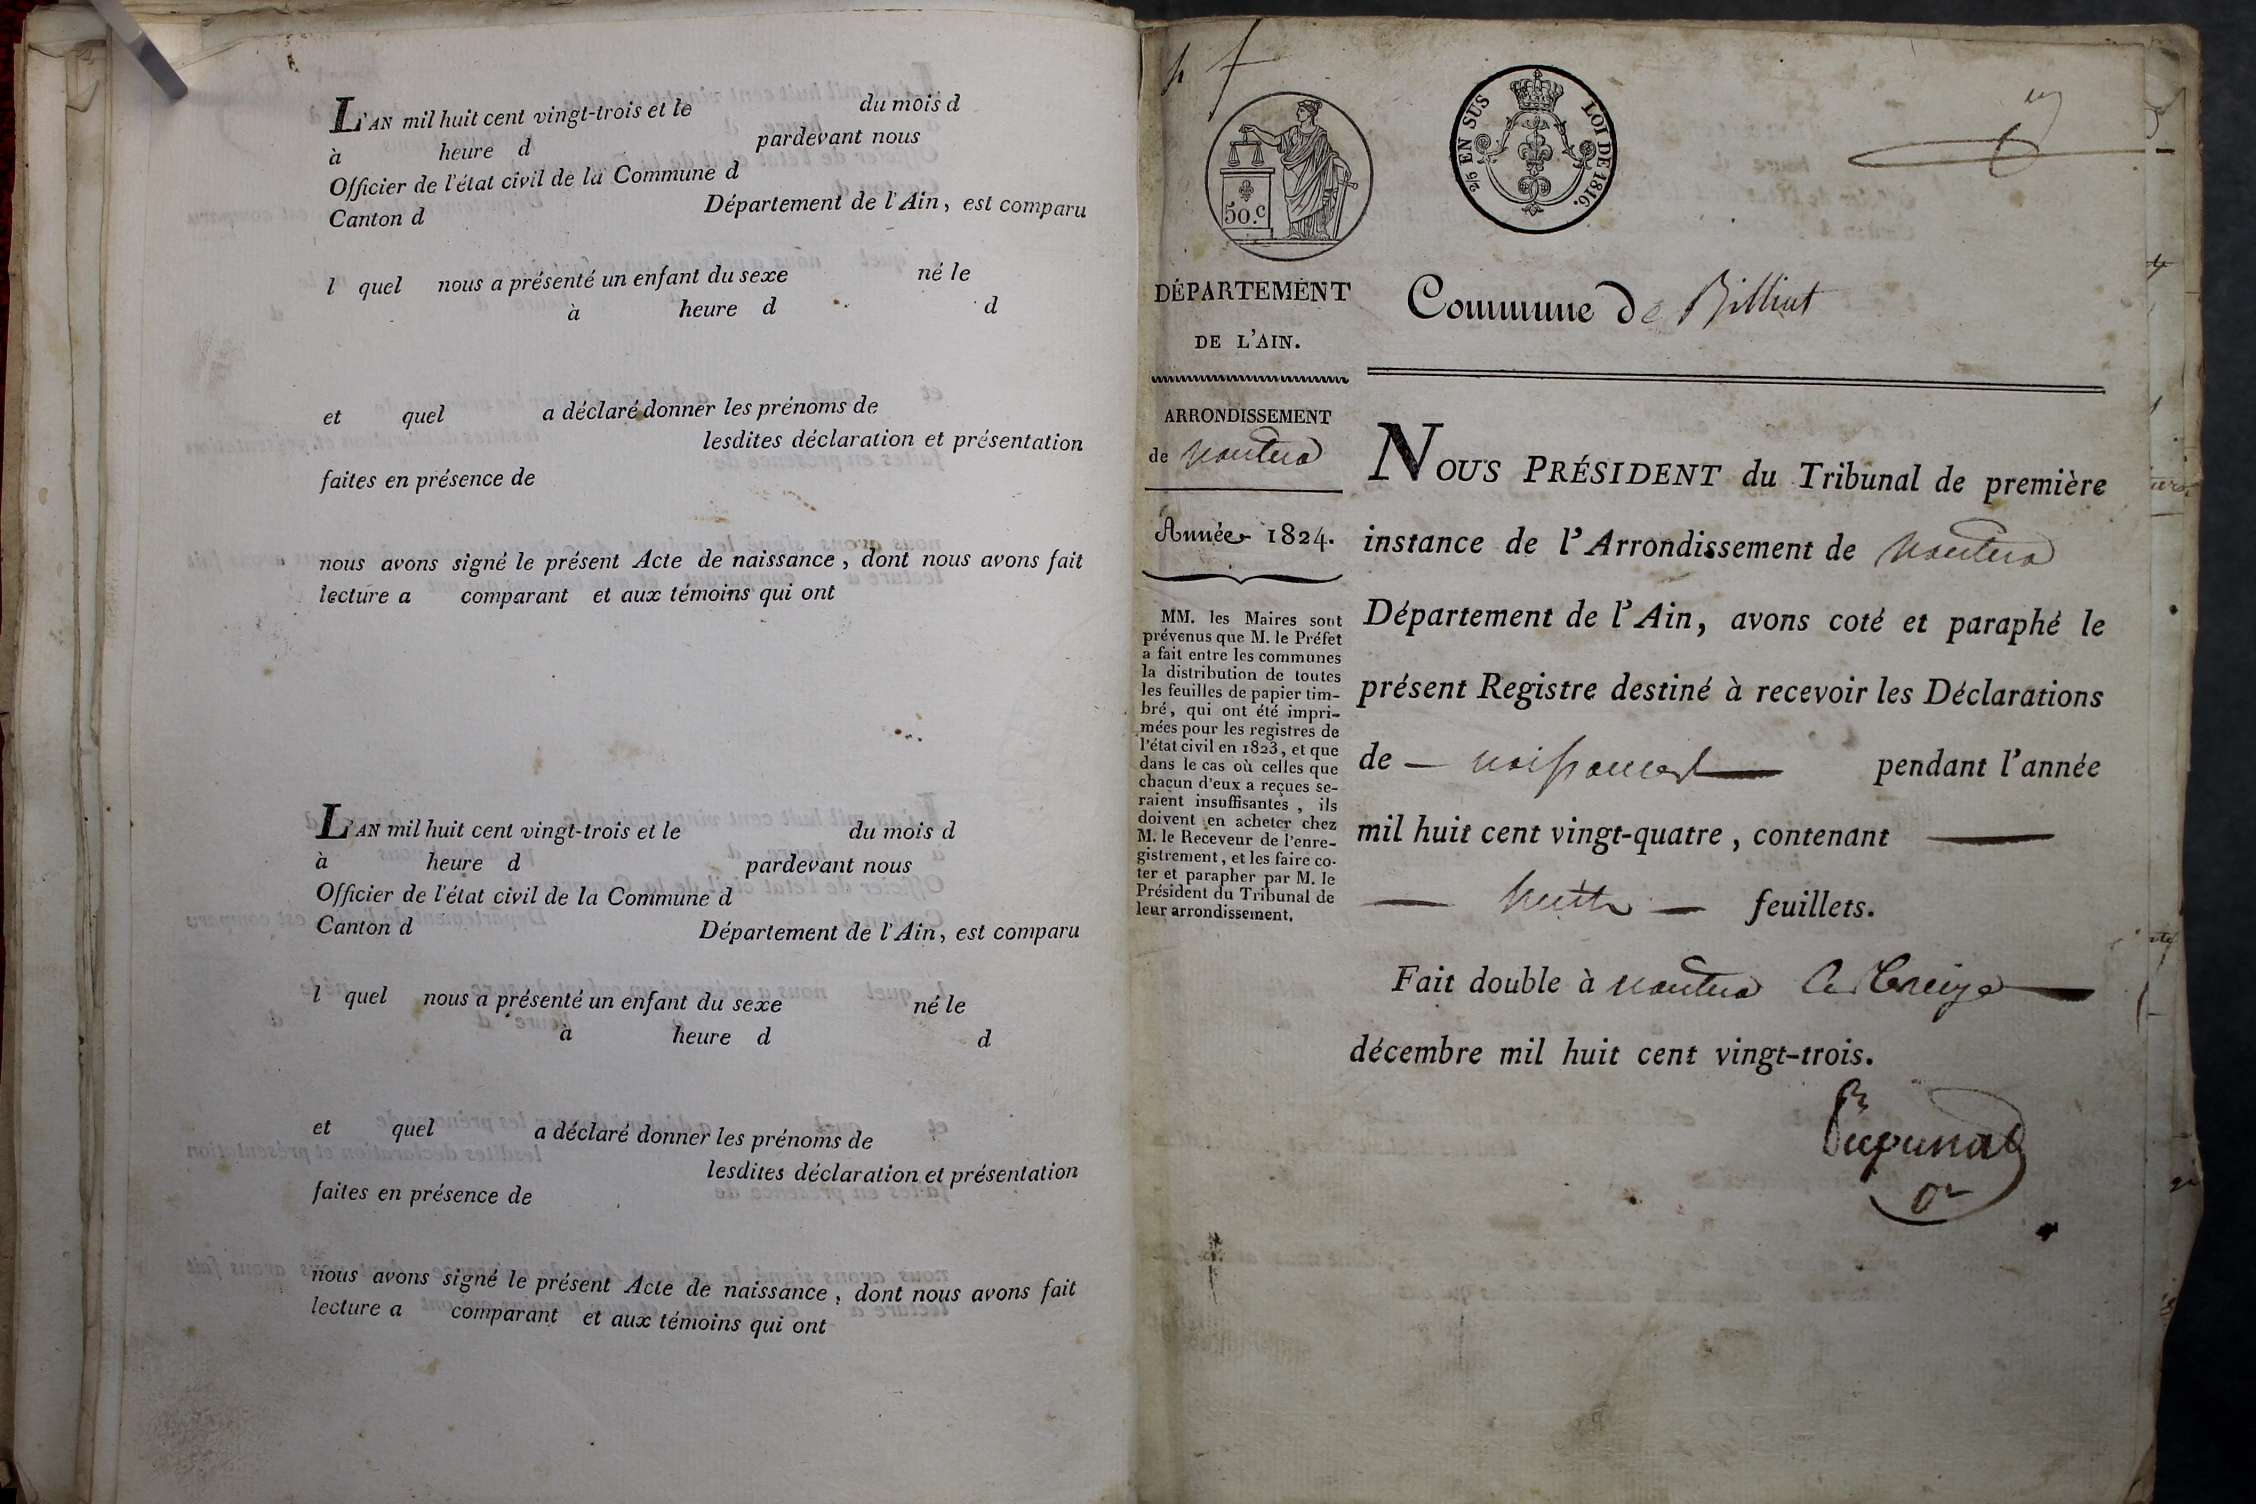 L'AN mil huit cent vingt-trois et le du mois d
à heure d pardevant nous
Officier de l'état civil de la Commune d
Canton d Département de l'Ain, est comparu
l quel nous a présenté un enfant du sexe né le
à heure d d
et quel a déclaré donner les prénoms de
lesdites déclaration et présentation
faites en présence de
nous avons signé le présent Acte de naissance, dont nous avons fait
lecture a comparant et aux témoins qui ont
L'AN mil huit cent vingt-trois et le du mois d
à heure d pardevant nous
Officier de l'état civil de la Commune d
Canton d Département de l'Ain, est comparu
l quel nous a présenté un enfant du sexe né le
à heure d d
et quel a déclaré donner les prénoms de
lesdites déclaration et présentation
faites en présence de
nous avons signé le présent Acte de naissance, dont nous avons fait
lecture a comparant et aux témoins qui ont
50.c
2/5 EN SUS LOI DE 1816.
DÉPARTEMENT
DE L'AIN.
ARRONDISSEMENT
de Nantua
Année 1824.
MM. les Maires sont
prévenus que M. le Préfet
a fait entre les communes
la distribution de toutes
les feuilles de papier tim-
bré, qui ont été impri-
mées pour les registres de
l'état civil en 1823, et que
dans le cas où celles que
chacun d'eux a reçues se-
raient insuffisantes, ils
doivent en acheter chez
M. le Receveur de l'enre-
gistrement, et les faire co-
ter et parapher par M. le
Président du Tribunal de
leur arrondissement.
Commune de Billiat
NOUS PRÉSIDENT du Tribunal de première
instance de l'Arrondissement de Nantua
Département de l'Ain, avons coté et paraphé le
présent Registre destiné à recevoir les Déclarations
de — naissances — pendant l'année
mil huit cent vingt-quatre, contenant —
— huit — feuillets.
Fait double à Nantua le treize —
décembre mil huit cent vingt-trois.